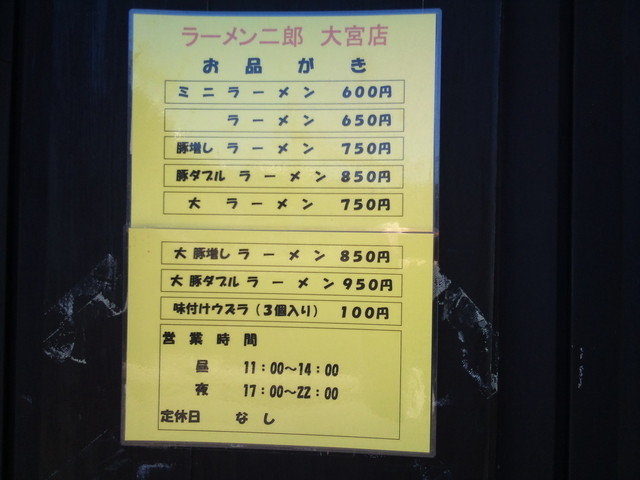 ラーメン二郎 大宮店
お品がき
ミニラーメン 600円
ラーメン 650円
豚増しラーメン 750円
豚ダブルラーメン 850円
大ラーメン 750円
大豚増しラーメン 850円
大豚ダブルラーメン 950円
味付けウズラ(3個入り) 100円
営業時間
昼 11:00～14:00
夜 17:00～22:00
定休日 なし